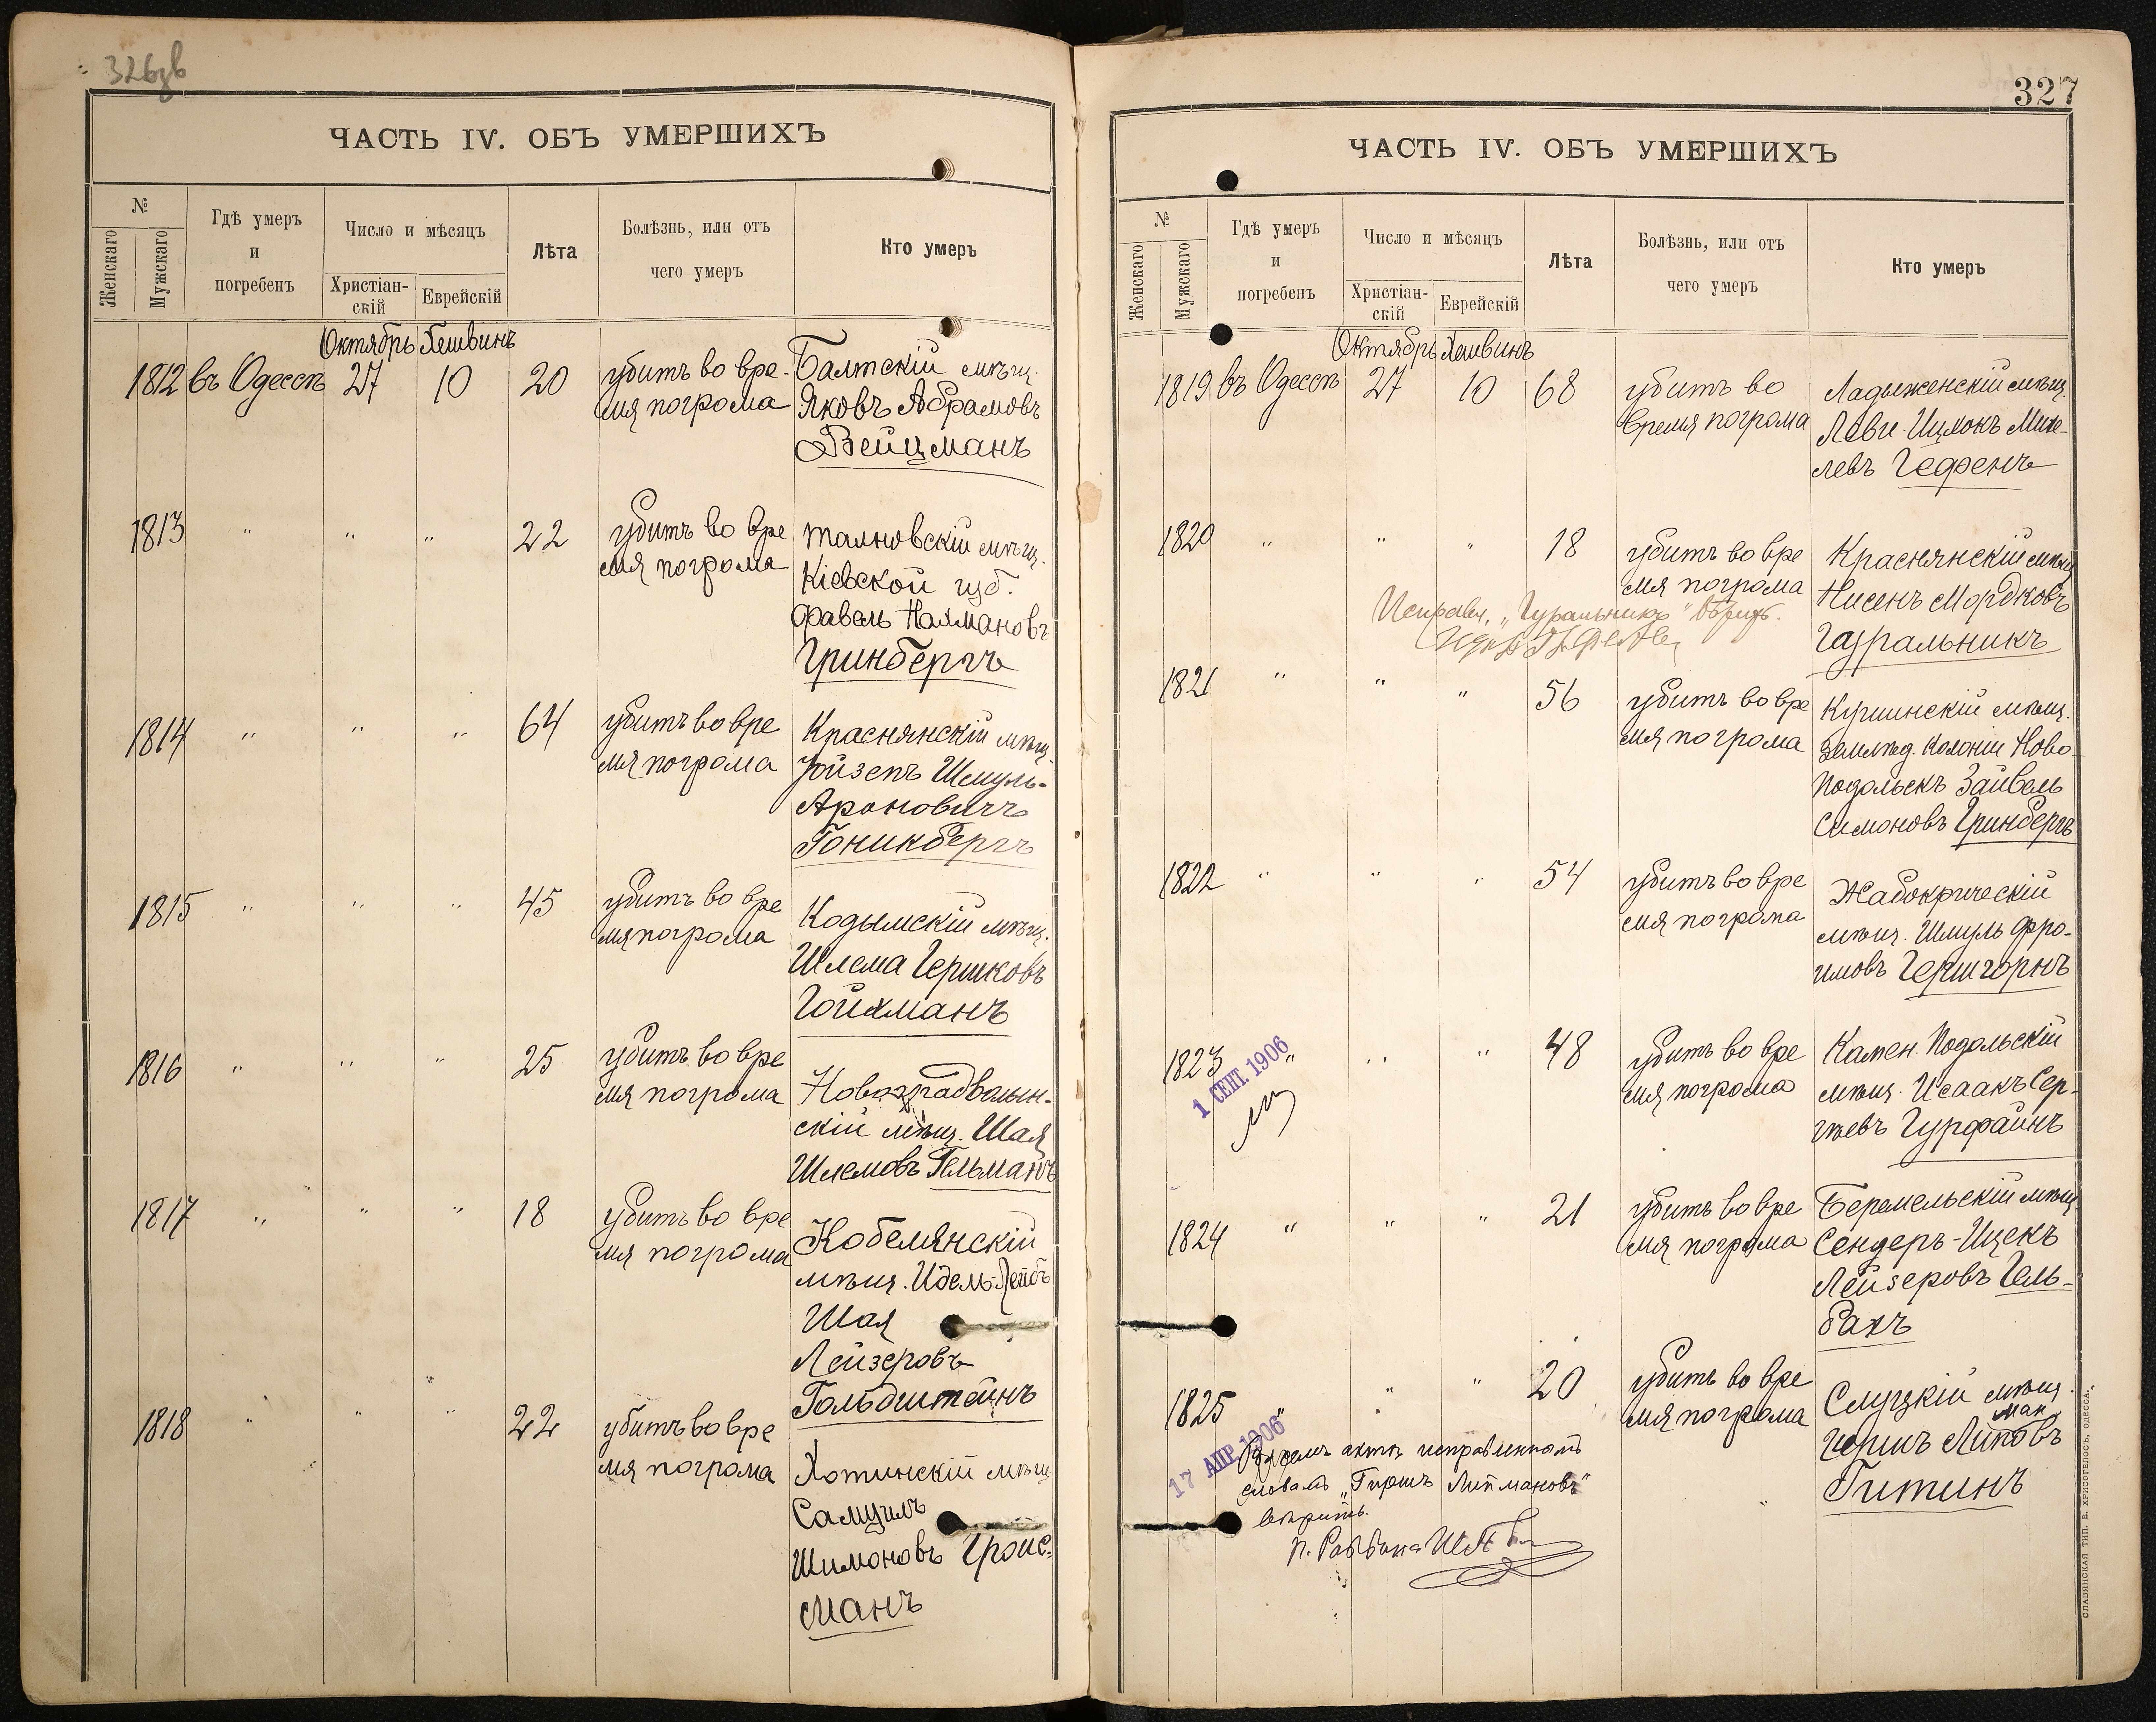 326зв
ЧАСТЬ IV. ОБЪ УМЕРШИХЪ
№
Женскаго
Мужскаго
Гдѣ умеръ
и
погребенъ
Число и мѣсяцъ
Христіан-
скій
Еврейскій
Лѣта
Болѣзнь, или отъ
чего умеръ
Кто умеръ
Октябрь Хешвинъ
1812 въ Одессѣ 27 10 20 убитъ во вре-
мя погрома
Балтскій мѣщ.
Яковъ Абрамовъ
Вейцманъ
1813 " " " 22 убитъ во вре
мя погрома
Тальновскій мѣщ.
Кіевской губ.
Фавель Нахмановъ
Гринбергъ
1814 " " " 64 убитъ во вре
мя погрома
Краснянскій мѣщ.
Іойзепъ Шмуль-
Ароновичъ
Гоникбергъ
1815 " " " 45 убитъ во вре
мя погрома
Кодымскій мѣщ.
Шлема Гершковъ
Гойхманъ
1816 " " " 25 убитъ во вре
мя погрома
Новоградволын-
скій мѣщ. Шая
Шлемовъ Гельманъ
1817 " " " 18 убитъ во вре
мя погрома
Кобелянскій
мѣщ. Идель-Лейбъ
Шая
Лейзеровъ
Гольдштейнъ
1818 " " " 22 убитъ во вре
мя погрома
Хотинскій мѣщ
Самуилъ
Шимоновъ Гройс-
манъ
327
ЧАСТЬ IV. ОБЪ УМЕРШИХЪ
№
Женскаго
Мужскаго
Гдѣ умеръ
и
погребенъ
Число и мѣсяцъ
Христіан-
скій
Еврейскій
Лѣта
Болѣзнь, или отъ
чего умеръ
Кто умеръ
Октябрь Хешвинъ
1819 въ Одессѣ 27 10 68 убитъ во
время погрома
Ладыженскій мѣщ.
Леви-Ицхокъ Михе-
левъ Гефенъ
1820 " " " 18 убитъ во вре
мя погрома
Краснянскій мѣщ
Нисенъ Мордковъ
Гуральникъ
Исправл. „Гуральникъ" вѣрить.
1821 " " " 56 убитъ во вре
мя погрома
Купинскій мѣщ.
Землѣд. Колоніи Ново
Подольскъ Зайвель
Симоновъ Гринбергъ
1822 " " " 54 убитъ во вре
мя погрома
Жабокрическій
мѣщ. Шмуль Фро-
имовъ Гершгорнъ
1823 " " " 48 убитъ во вре
мя погрома
Камен. Подольскій
мѣщ. Исаакъ Сер-
гѣевъ Гурфайнъ
1 СЕНТ. 1906
1824 " " " 21 убитъ во вре
мя погрома
Беремельскій мѣщ
Сендеръ-Ицекъ
Лейзеровъ Гель-
бахъ
1825 " " " 20 убитъ во вре
мя погрома
Слуцкій мѣщ.
ман
Гершъ Липовъ
Гитинъ
17 АПР. 1906
Въ семъ актѣ исправленнымъ
словамъ „Гиршъ Липмановъ"
вѣрить.
п. Раввина
СЛАВЯНСКАЯ ТИП. Е. ХРИСОГЕЛОСЪ, ОДЕССА.